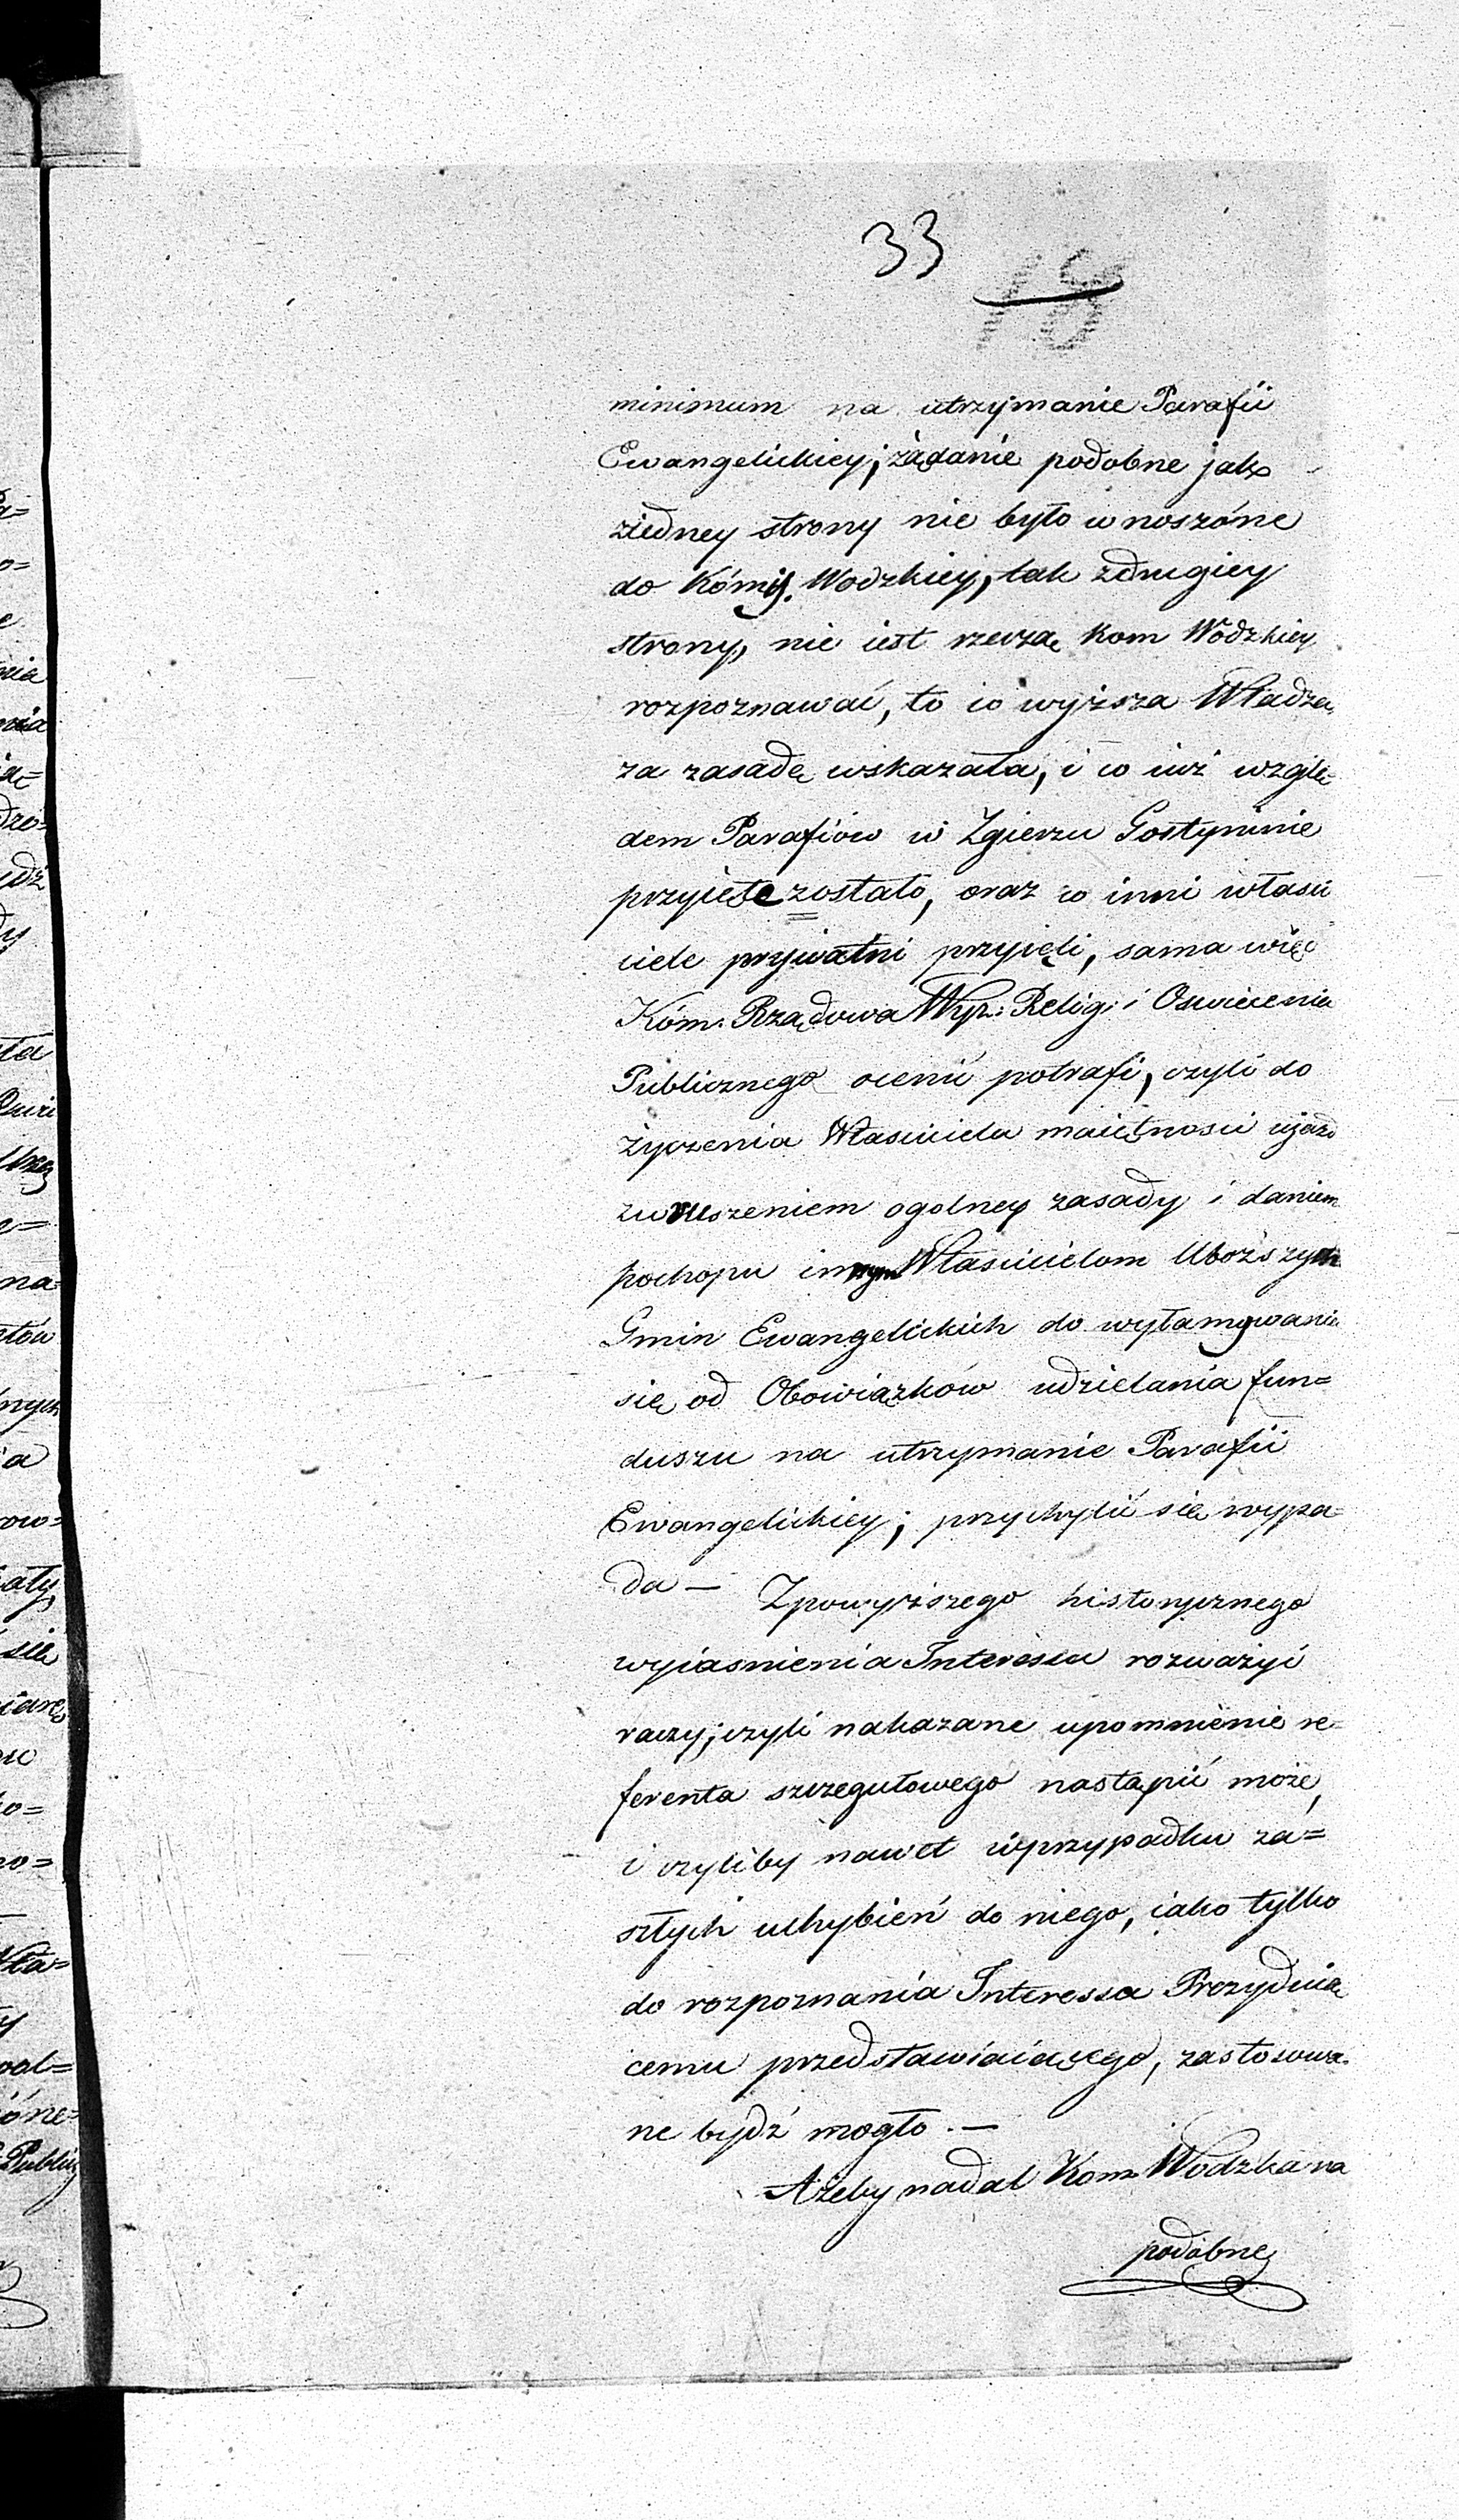 33
18
minimum na utrzymanie Parafii
Ewangelickiey; żądanie podobne jak
ziedney strony nie było wnoszóne
do Kómis. Wodzkiey, tak zdrugiey
strony, nie iest rzeczą Kom Wodzkiey
rozpoznawać, to co wyższa Władza
za zasadę wskazała, i co iuż wzglę-
dem Parafiów w Zgierzu Gostyninie
przyięte zostało, oraz co inni właści
ciele prywatni przyięli, sama więc
Kóm. Rządowa Wyz: Relig: i Oswiecenia
Publicznego ocenić potrafi, czyli do
życzenia Właściciela maiętności ujazd
zwruszeniem ogolney zasady i daniem
pochopu innym Właścicielom Uboższych
Gmin Ewangelickich do wyłamywania
się od Obowiązków udzielania fun=
duszu na utrzymanie Parafii
Ewangelickiey; przychylić się wypa=
da — Zpowyższego historycznego
wyiasnienia Interessu rozważyć
raczy; czyli nakazane upomnienie re=
ferenta szczegułowego nastąpić może,
i czyliby nawet wprzypadku za=
szłych uchybień do niego, iako tylko
do rozpoznania Interessa Prezyduią
cemu przedstawiaiącego, zastosowa-
ne bydź mogło. —
Ażeby nadal Kom Wodzka na
podobne